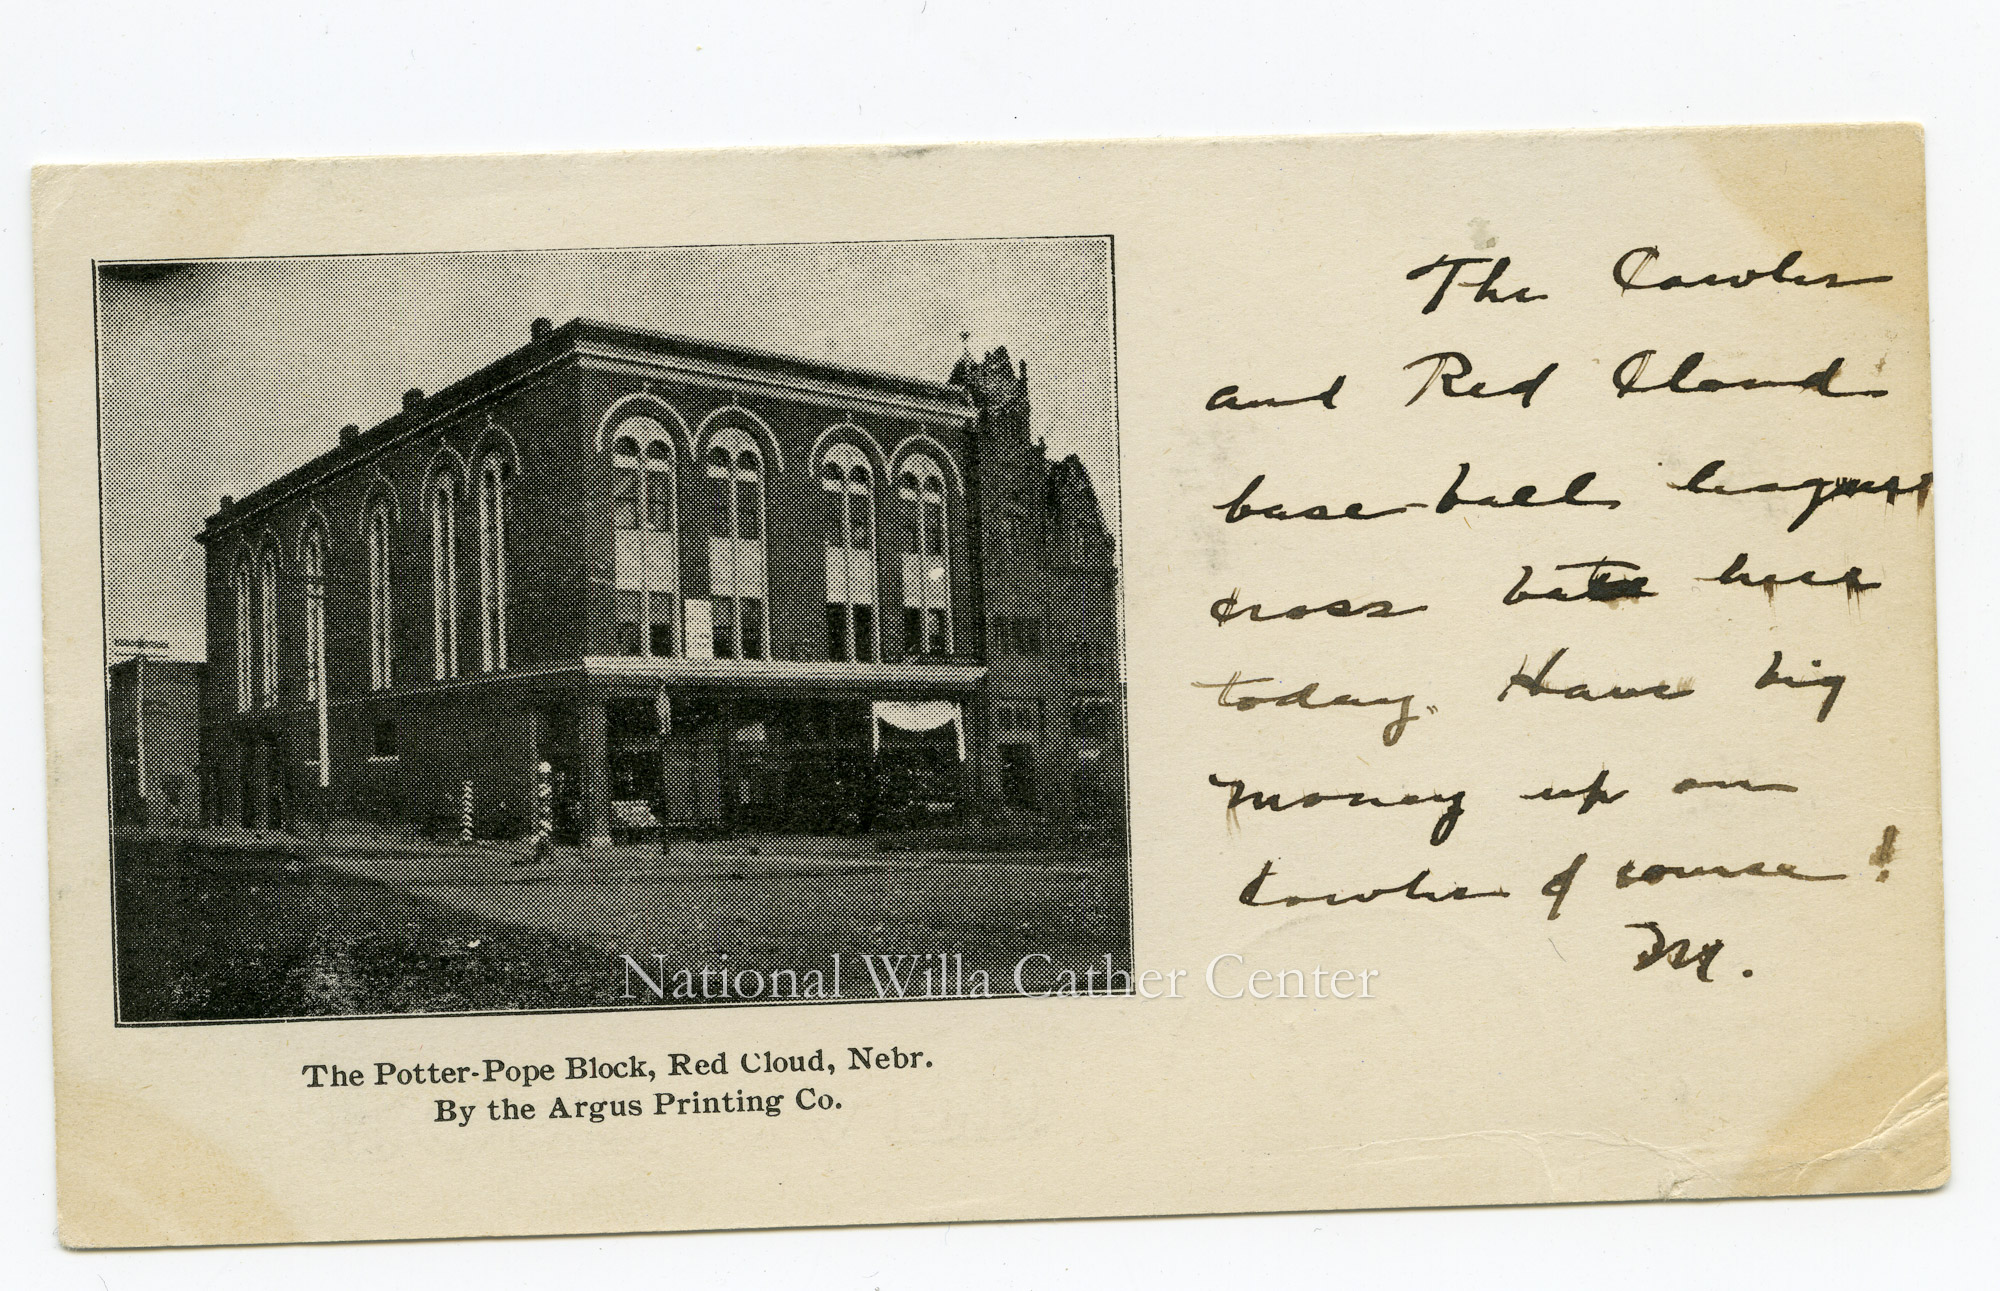 The Cowles
and Red Cloud
base-ball leagues
cross bats here
today. Have big
money up on
Cowles of course!
M.
National Willa Cather Center
The Potter-Pope Block, Red Cloud, Nebr.
By the Argus Printing Co.